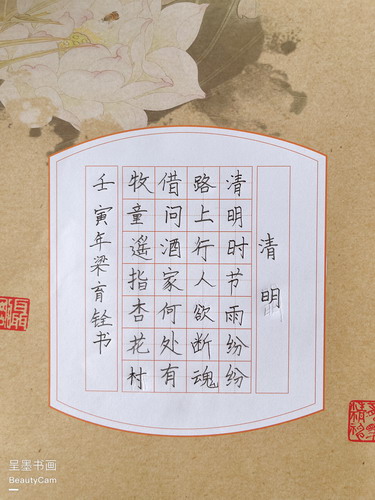 清明
清明时节雨纷纷
路上行人欲断魂
借问酒家何处有
牧童遥指杏花村
壬寅年梁育铨书
呈墨书画
BeautyCam